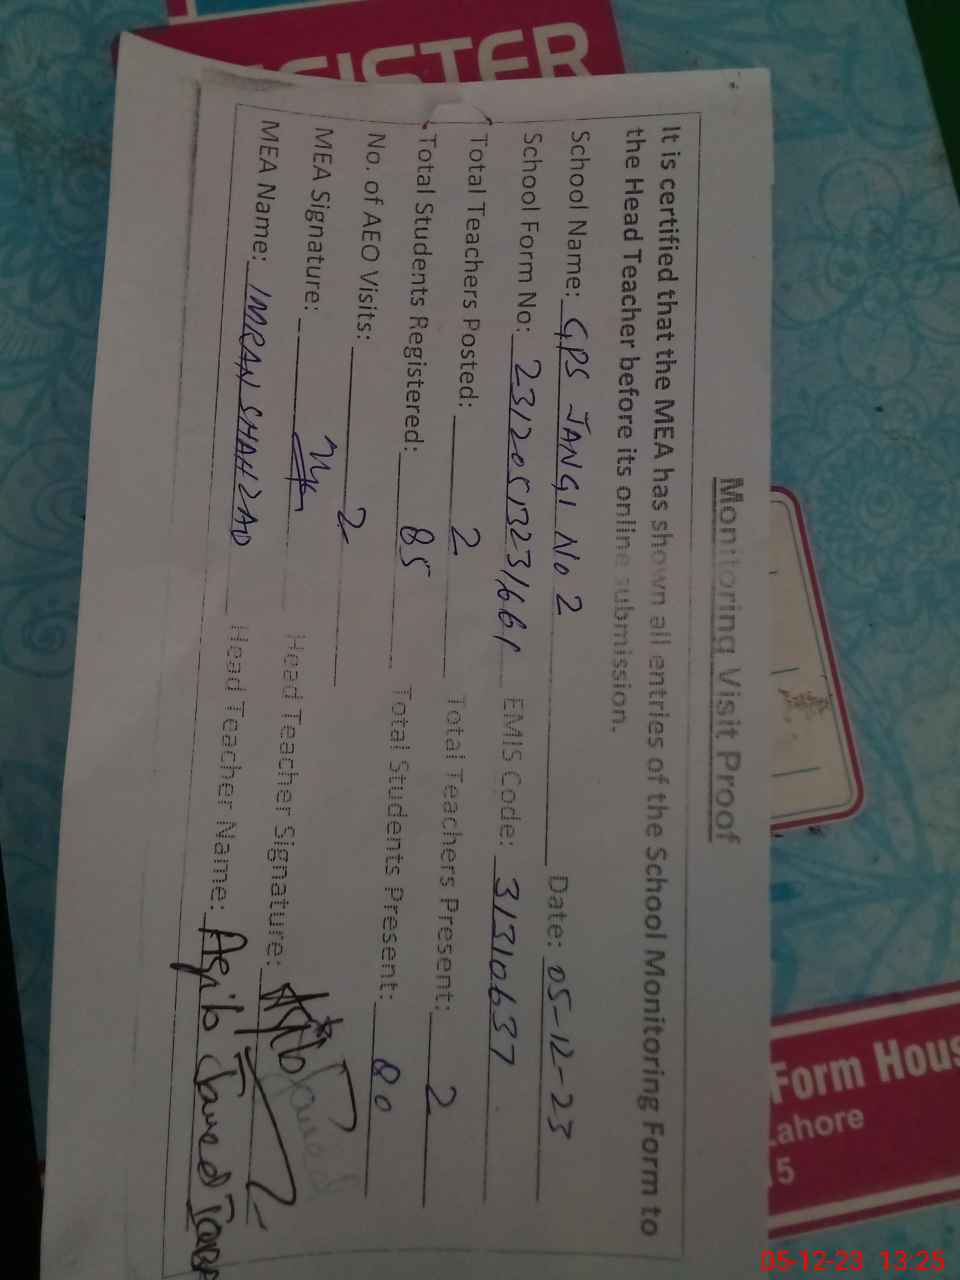 GISTER
Monitoring Visit Proof
It is certified that the MEA has shown all entries of the School Monitoring Form to
the Head Teacher before its online submission.
School Name: GPS JANGI No 2 Date: 05-12-23
School Form No: 23120513231661 EMIS Code: 31310637
Total Teachers Posted: 2 Total Teachers Present: 2
Total Students Registered: 85 Total Students Present: 80
No. of AEO Visits: 2
MEA Signature: Head Teacher Signature:
MEA Name: IMRAN SHAHZAD Head Teacher Name: Aqib Javed
Form Hous
Lahore
5
05-12-23 13:25